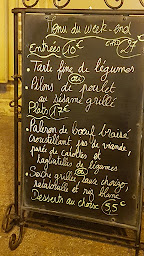 Menu du week-end
Entrées 10€
Tarte fine de légumes
ou
Pilons de poulet
au sésame grillé
Plats 17€
Paleron de bœuf braisé
croustillant jus de viande,
purée de carottes et
tagliatelles de légumes
ou
Seiche grillée, sauce chorizo,
ratatouille et riz blanc
Desserts au choix 5,5€